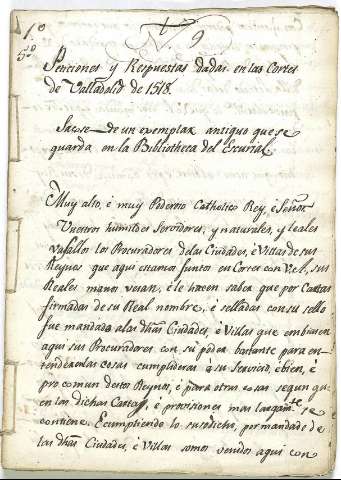 1.º
5º
9
Peticiones y Respuestas dadas en las Cortes
de Valladolid de 1518.
Sacose de un exemplar antiguo que se
guarda en la Bibliotheca del Escurial.
Muy alto, è muy Poderoso Catholico Rey, è Señor
Vuestros humildes Servidores, y naturales, y leales
vasallos los Procuradores de las Ciudades, è Villas de sus
Reynos que aqui estamos juntos en Cortes con V.A. sus
Reales manos vesan, è le hacen saber que por Cartas
firmadas de su Real nombre, è selladas con su sello
fue mandado a las dhas Ciudades, è Villas que embiasen
aqui sus Procuradores con su poder bastante para en-
tender en las cosas cumplideras a su Servicio, è bien, è
pro comun destos Reynos, è para otras cosas segun que
en las dichas Cartas, è provisiones mas largamte. se
contiene. E cumpliendo lo susodicho, por mandado de
las dhas Ciudades, è Villas somos venidos aqui con